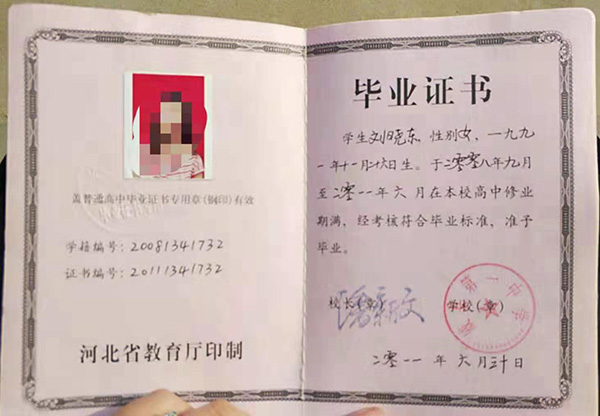 盖普通高中毕业证书专用章(钢印)有效
学籍编号: 20081341732
证书编号: 20111341732
河北省教育厅印制
毕业证书
学生刘晓东, 性别女, 一九九
一年十一月二十六日生。于二〇〇八年九月
至二〇一一年六月在本校高中修业
期满, 经考核符合毕业标准, 准予
毕业。
校长(章)
学校(章)
第一中学
二〇一一年六月三十日